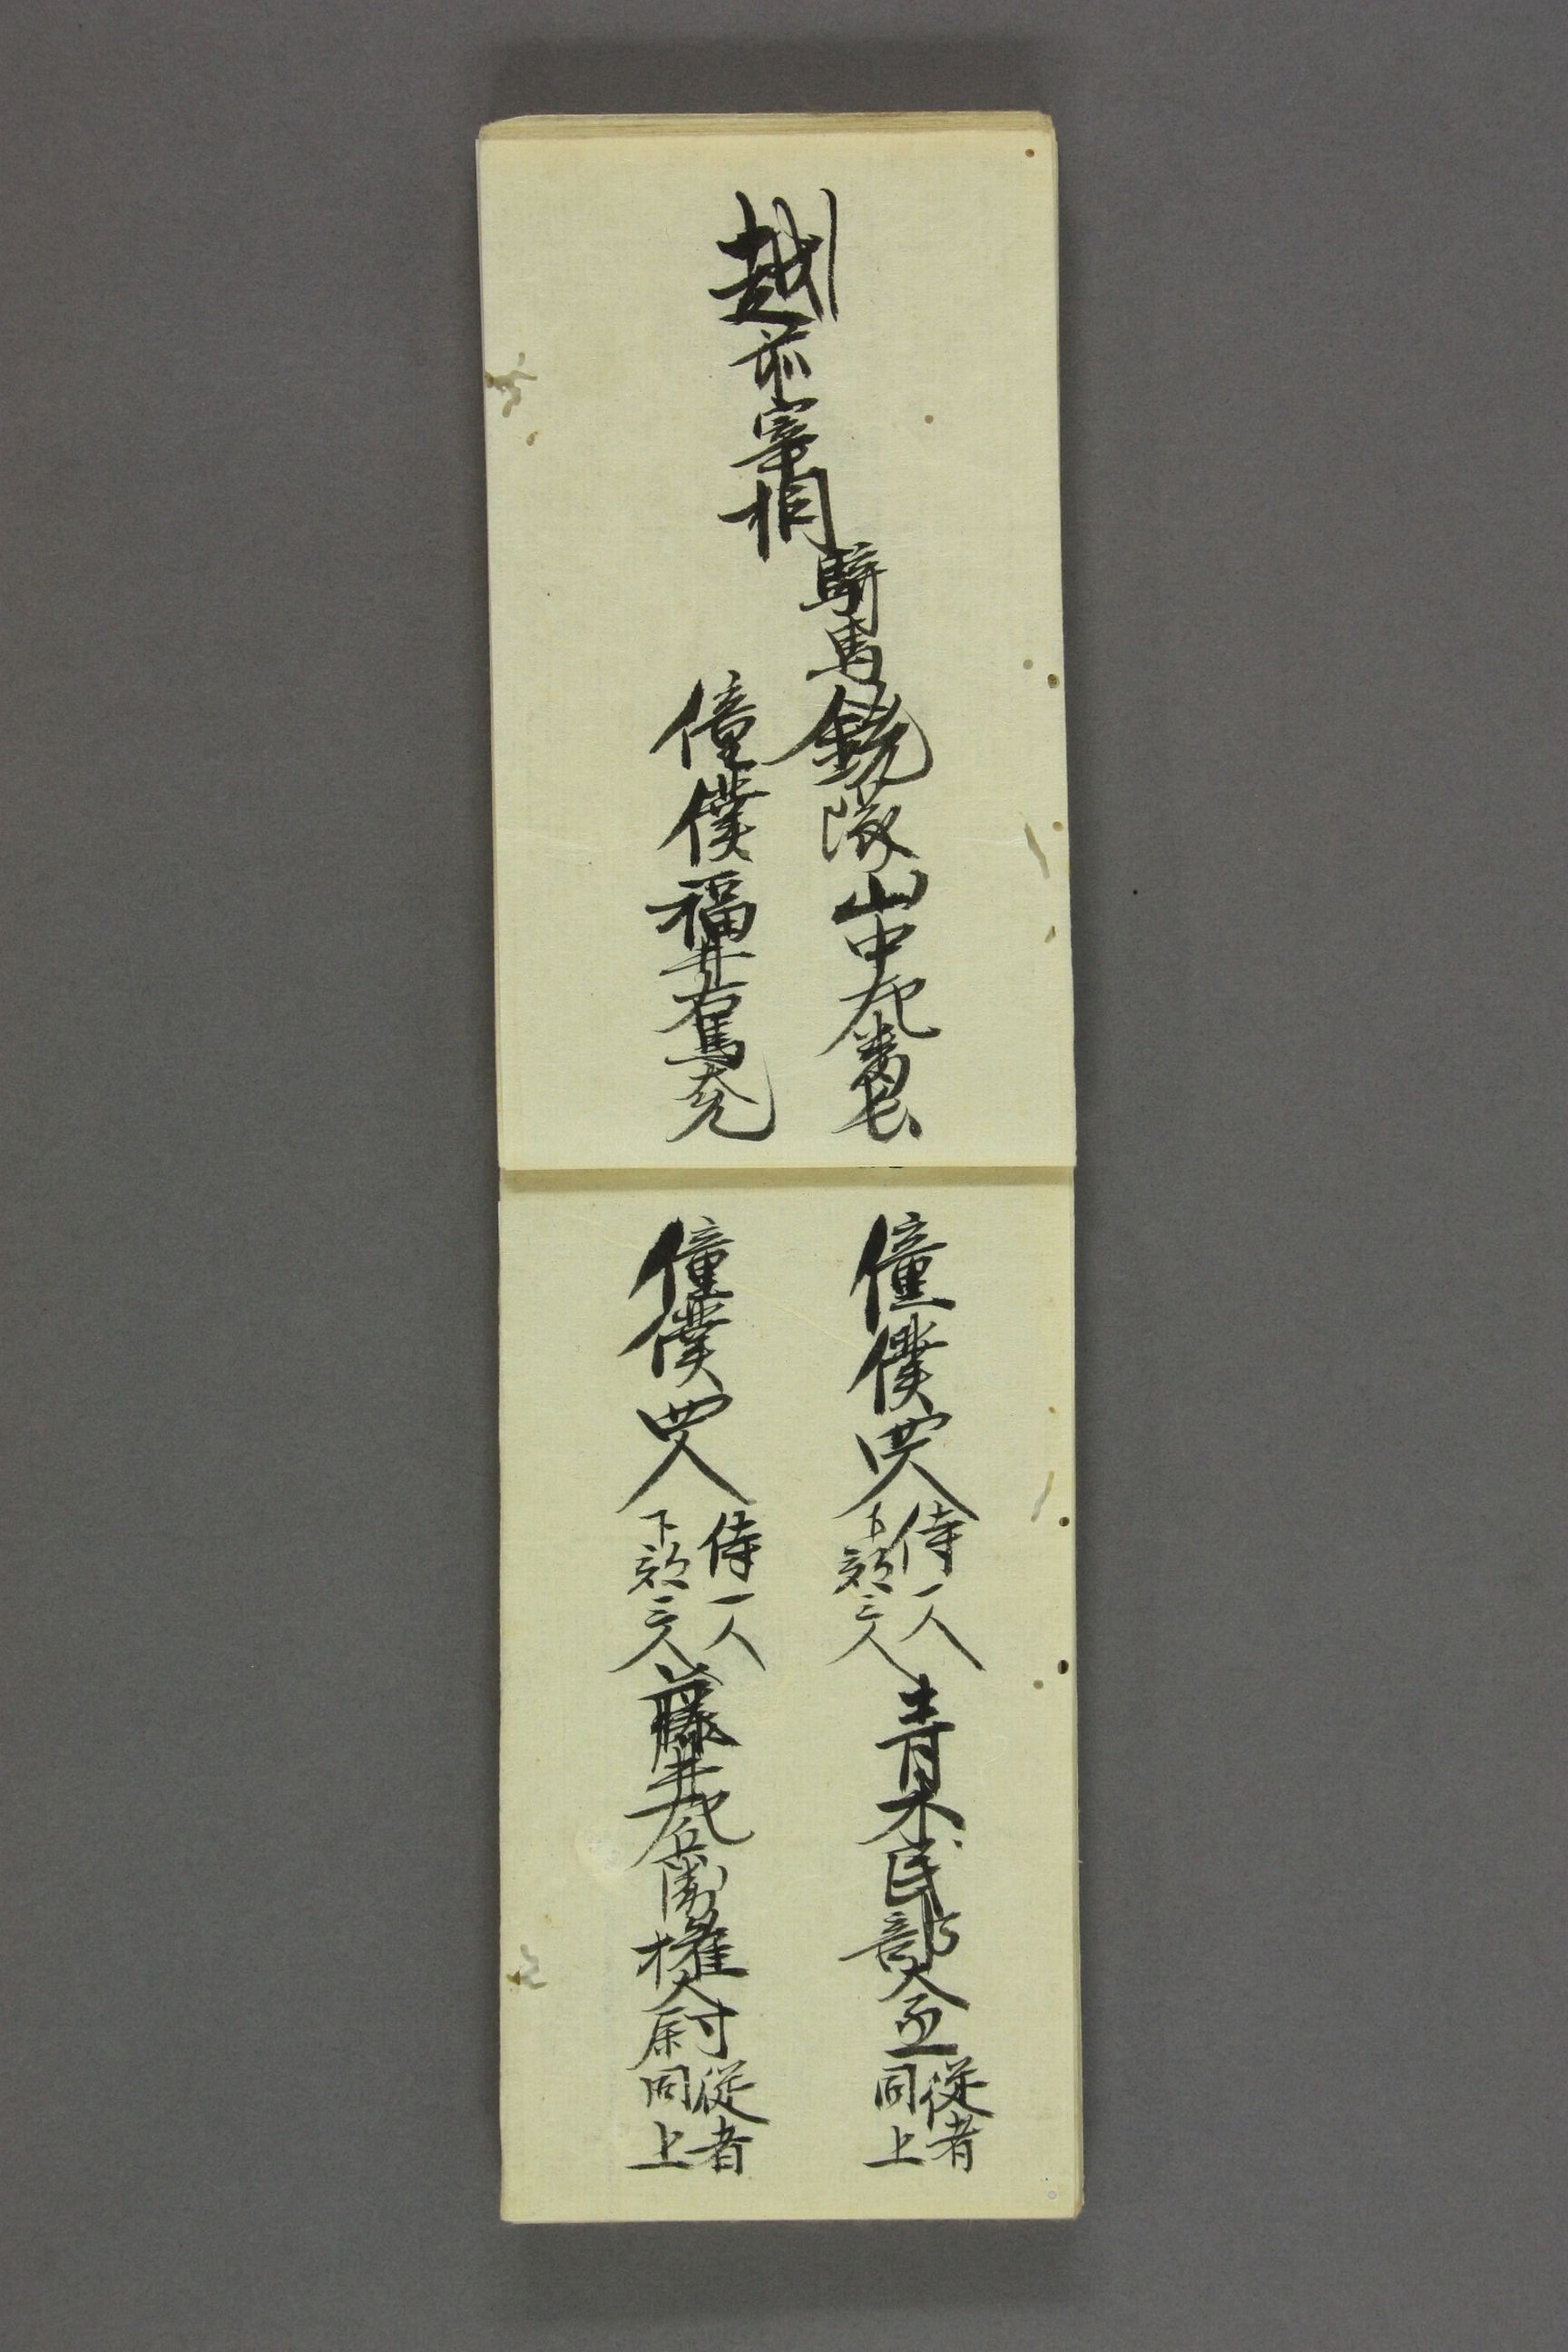 越前宰相
騎馬銃隊山中左番長
僮僕福井右馬大允
僮僕四人
侍一人
下部三人
青木民部大丞
従者
同上
僮僕四人
侍一人
下部三人
藤井左兵衛権大尉
従者
同上